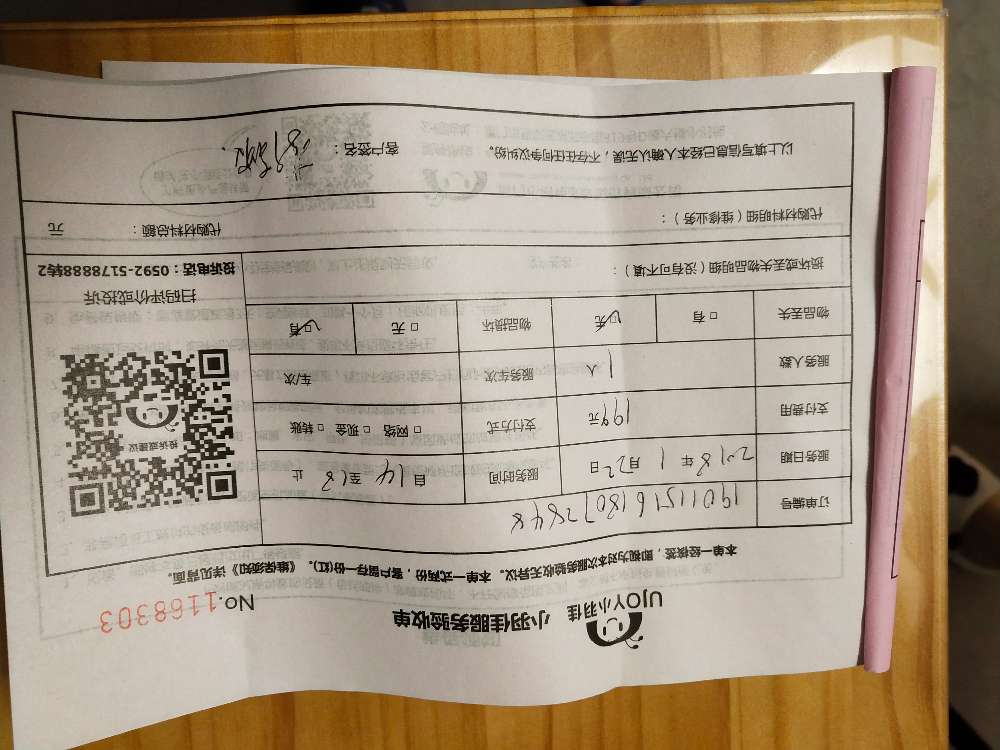 UJOY小羽佳 小羽佳服务验收单 No.1168303
本单一经核签,即视为对本次服务验收无异议。本单一式两份,客户留存一份(红)。《维保须知》详见背面。
订单编号 1901151618072848
服务日期 2018年1月22日 服务时间 自14至18止
支付费用 199元 支付方式 □网络 □现金 □转账
服务人数 1人 服务车次 车/次
物品丢失 □有 □无 物品损坏 □无 □有
投诉或建议
扫码评价或投诉
投诉电话:0592-5178888转2
损坏或丢失物品明细(没有可不填):
代购材料明细(维修业务): 代购材料总额: 元
以上填写信息已经本人确认无误,不存在任何争议纠纷。 客户签名: